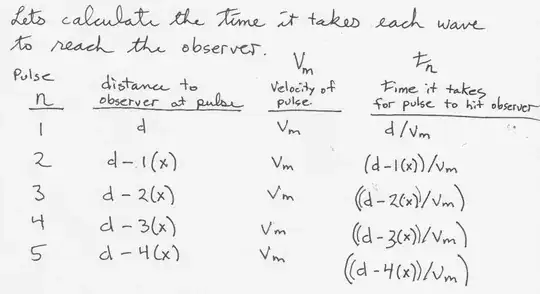 Lets calculate the time it takes each wave
to reach the observer.
Pulse n distance to observer at pulse Vm Velocity of pulse tn time it takes for pulse to hit observer
1 d Vm d/Vm
2 d-1(x) Vm (d-1(x))/Vm
3 d-2(x) Vm ((d-2(x))/Vm)
4 d-3(x) Vm ((d-3(x))/Vm)
5 d-4(x) Vm ((d-4(x))/Vm)